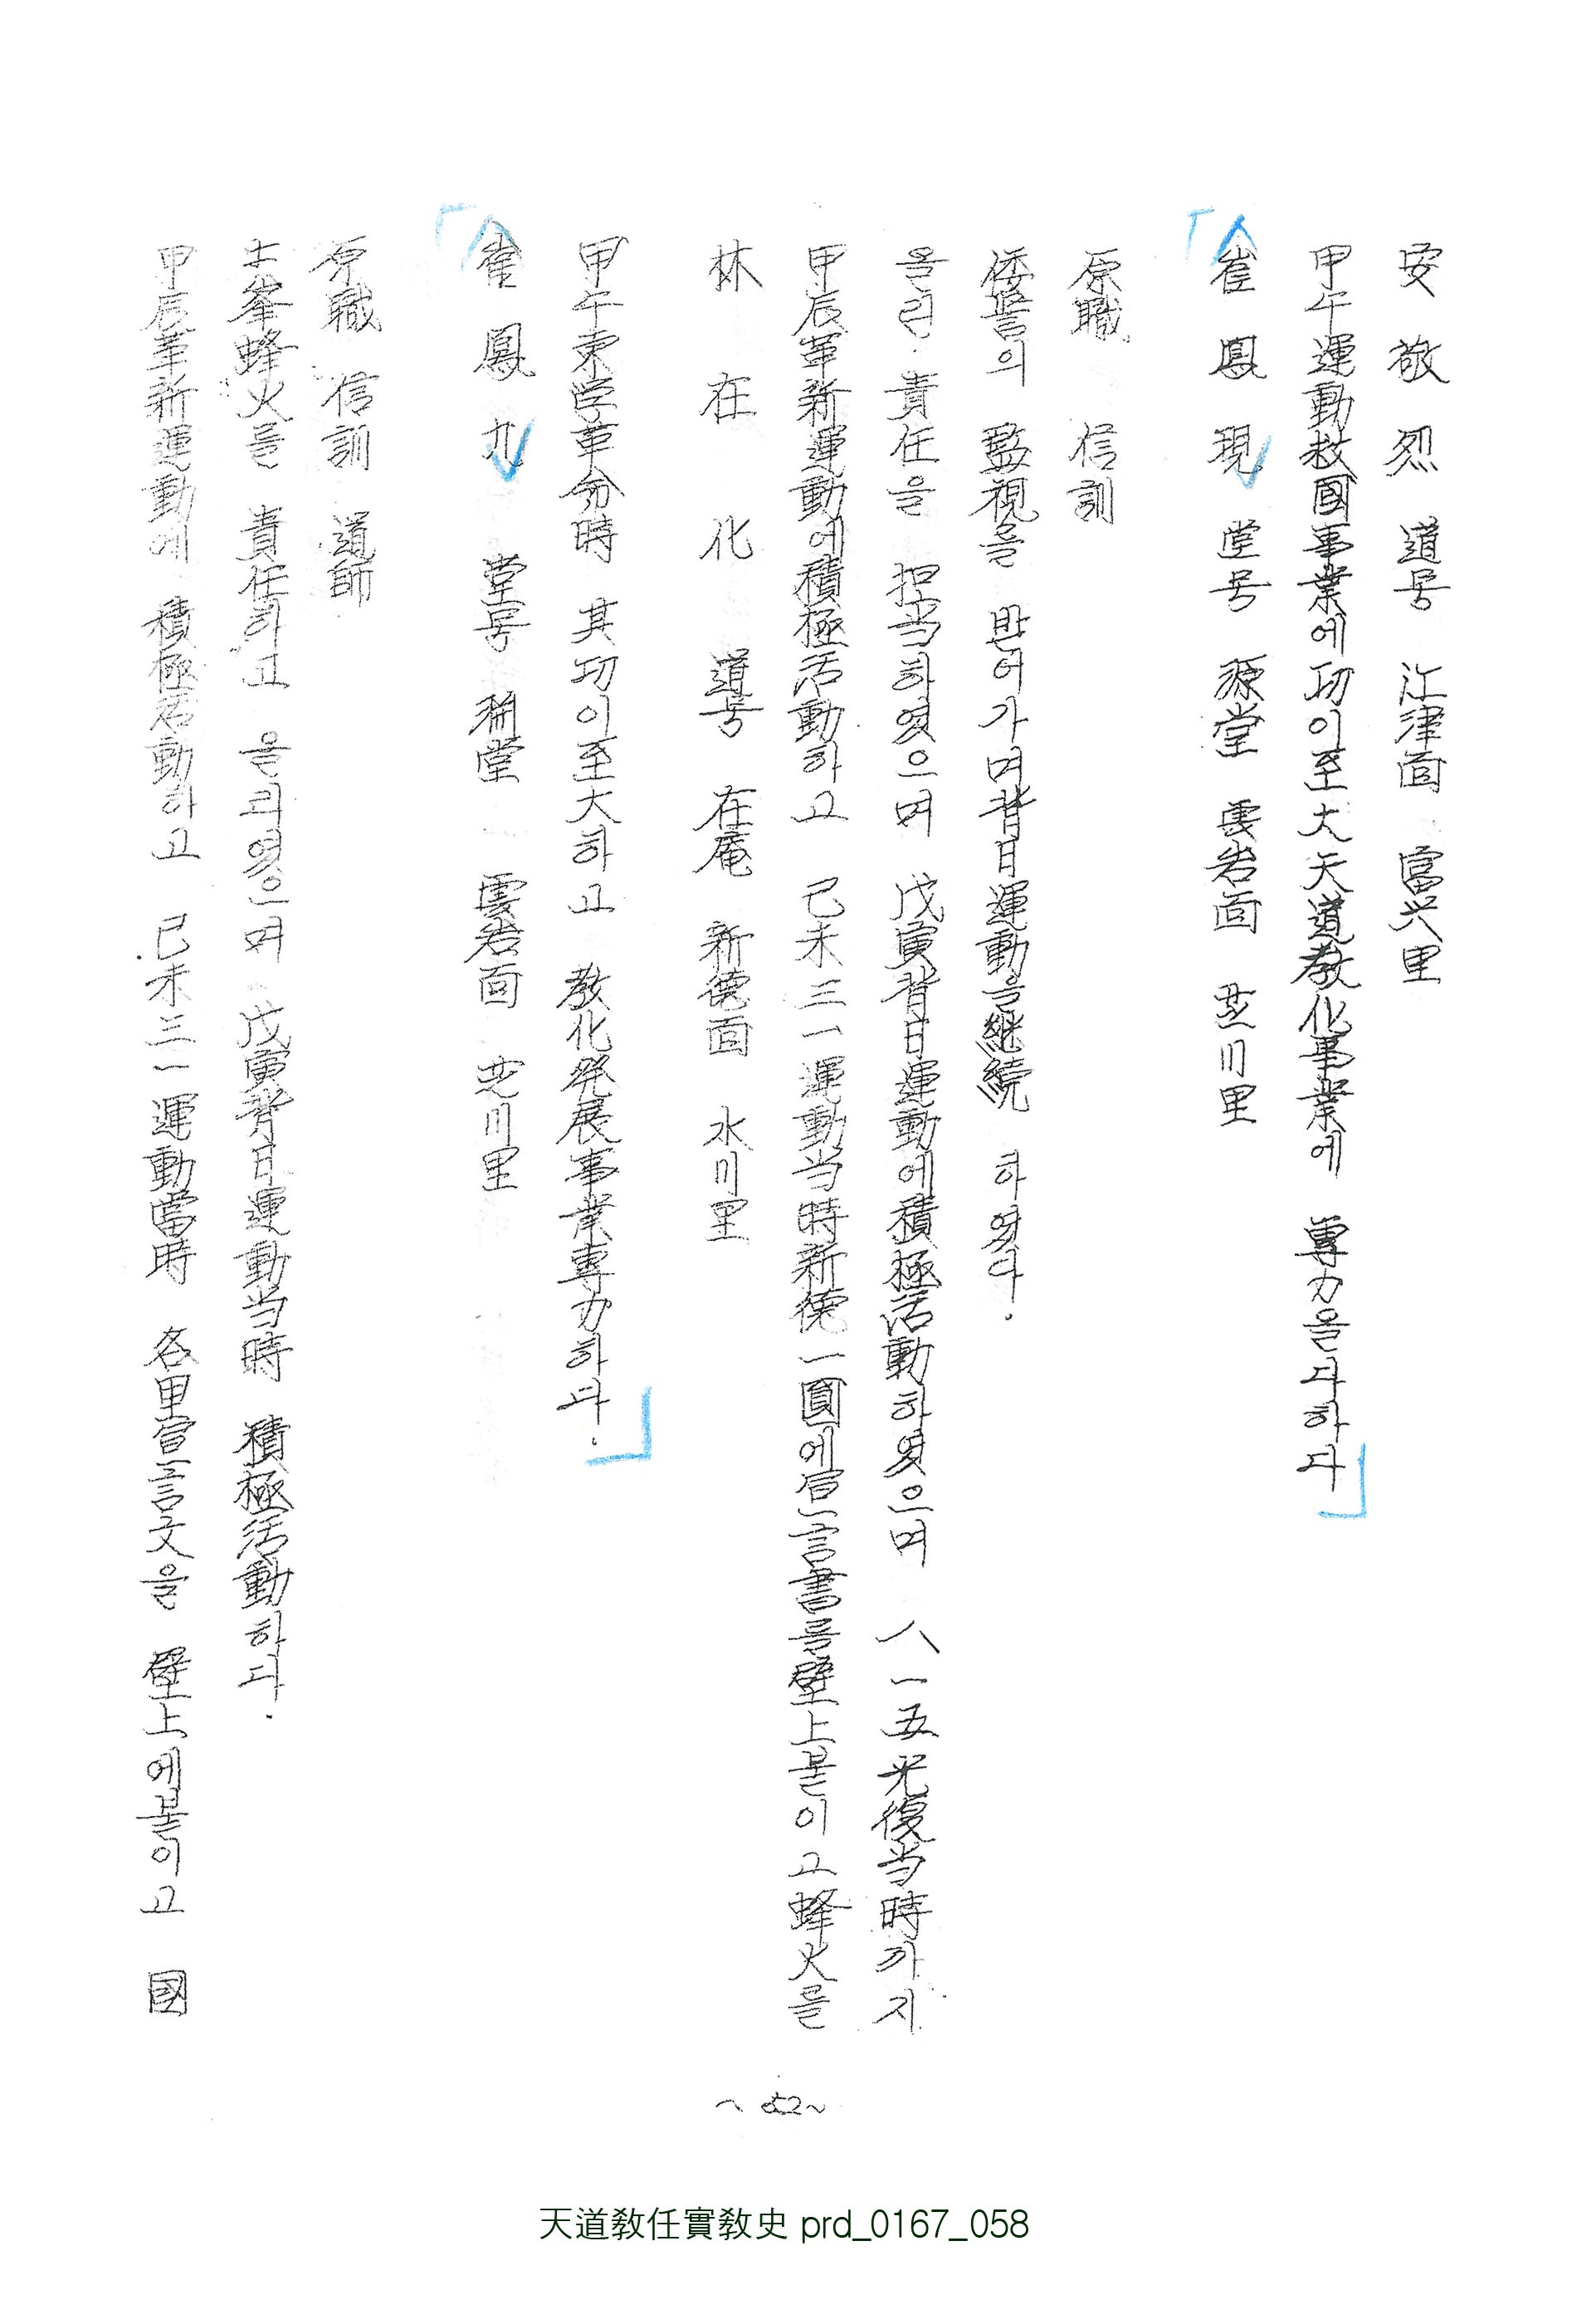 安敬烈 道号 江津面 富兴里
甲午運動救國事業에 功이至大天道教化事業에 專力을다하다
崔鳳現 堂号 源堂 雲岩面 芝川里
原職 信訓
倭警의 監視을 받어가며背日運動을継続 하였다.
올린 責任을 担当하였으며 戊寅背日運動에積極活動하였으며 八一五光復当時까지
甲辰革新運動에積極活動하고 己未三一運動当時新德一圓에宣言書를壁上붙이고蜂火을
林在化 道号 在庵 新德面 水川里
甲午東学革分時 其功이至大하고 教化発展事業專力하다.
崔鳳九 堂号 堂 雲岩面 芝川里
原職 信訓 道師
士峯蜂火를 責任하고 올리였으며 戊寅背日運動当時 積極活動하다.
甲辰革新運動에 積極活動하고 己未三一運動當時 各里宣言文을 壁上에붙이고 國
~52~
天道敎任實敎史 prd_0167_058